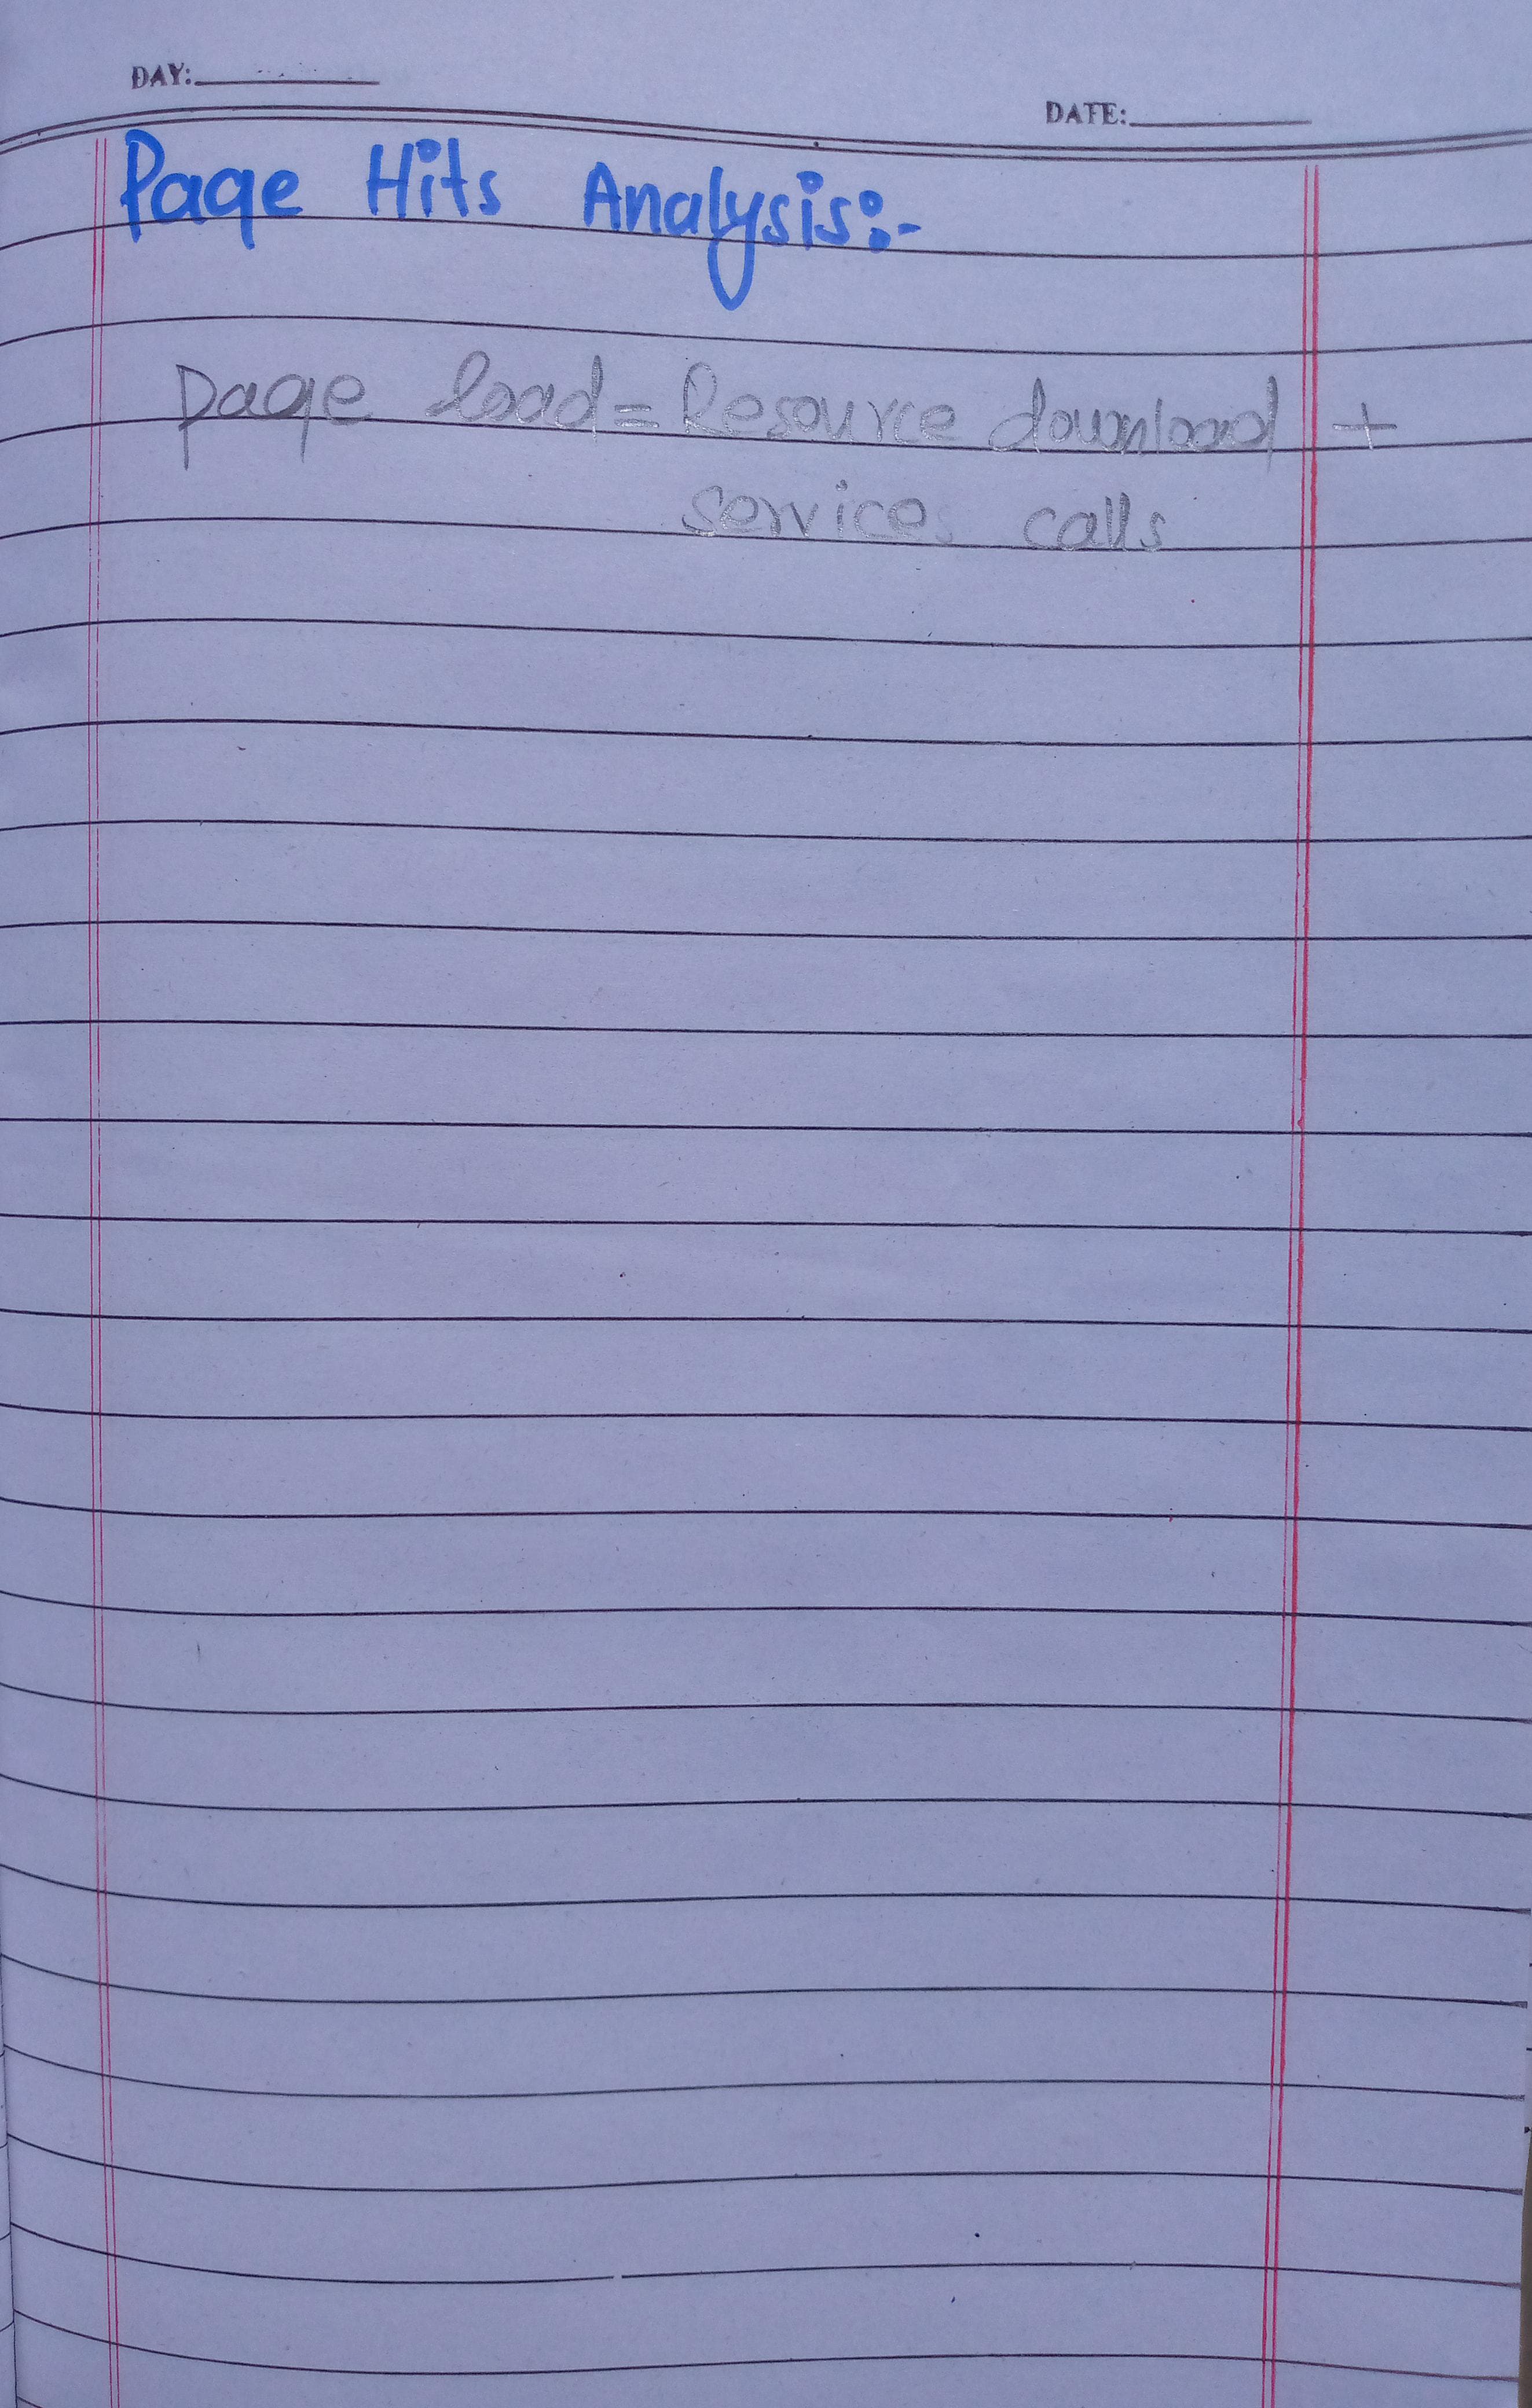 DAY:
DATE:
Page Hits Analysis:-
page load = Resource download +
service calls